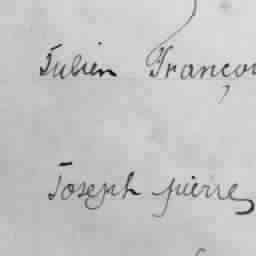 Julien Françoi
Joseph pierre